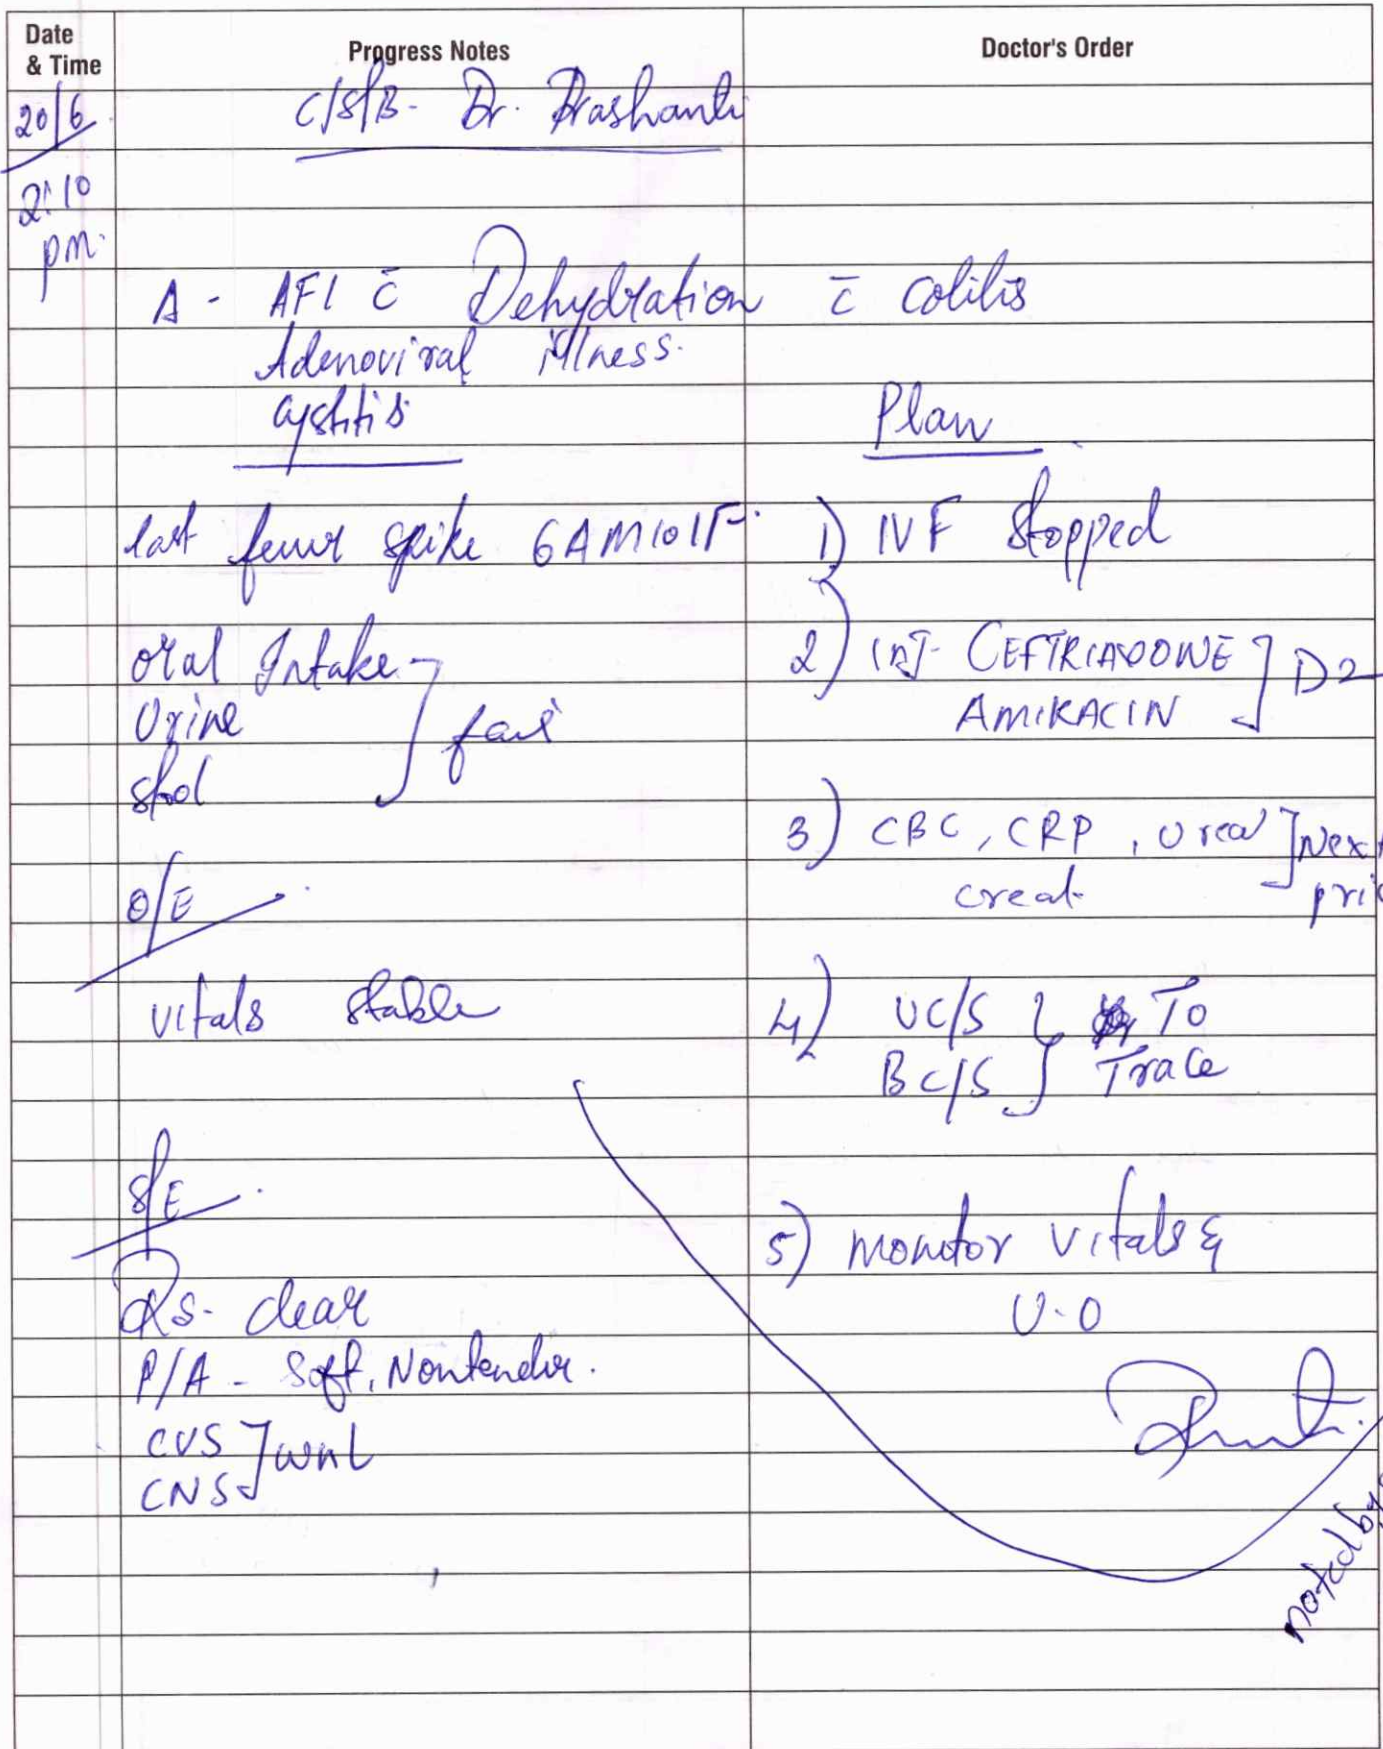 Date & Time
Progress Notes
Doctor's Order
20/6
2:10 pm.
C/S/B- Dr. Prashanti
A - AFI c̄ Dehydration c̄ colitis
Adenoviral illness.
cystitis
last fever spike 6AM 101F.
oral Intake
Urine
stool
fair
O/E
vitals stable
S/E
RS- clear
P/A - Soft, Nontender.
CVS
CNS
] WNL
Plan
1) IVF Stopped
2) INJ- CEFTRIAXONE
AMIKACIN
] D2
3) CBC, CRP, Urea
creat
] Next
pric
4) UC/S
BC/S
} To
Trace
5) monitor vitals &
U.O
noted by